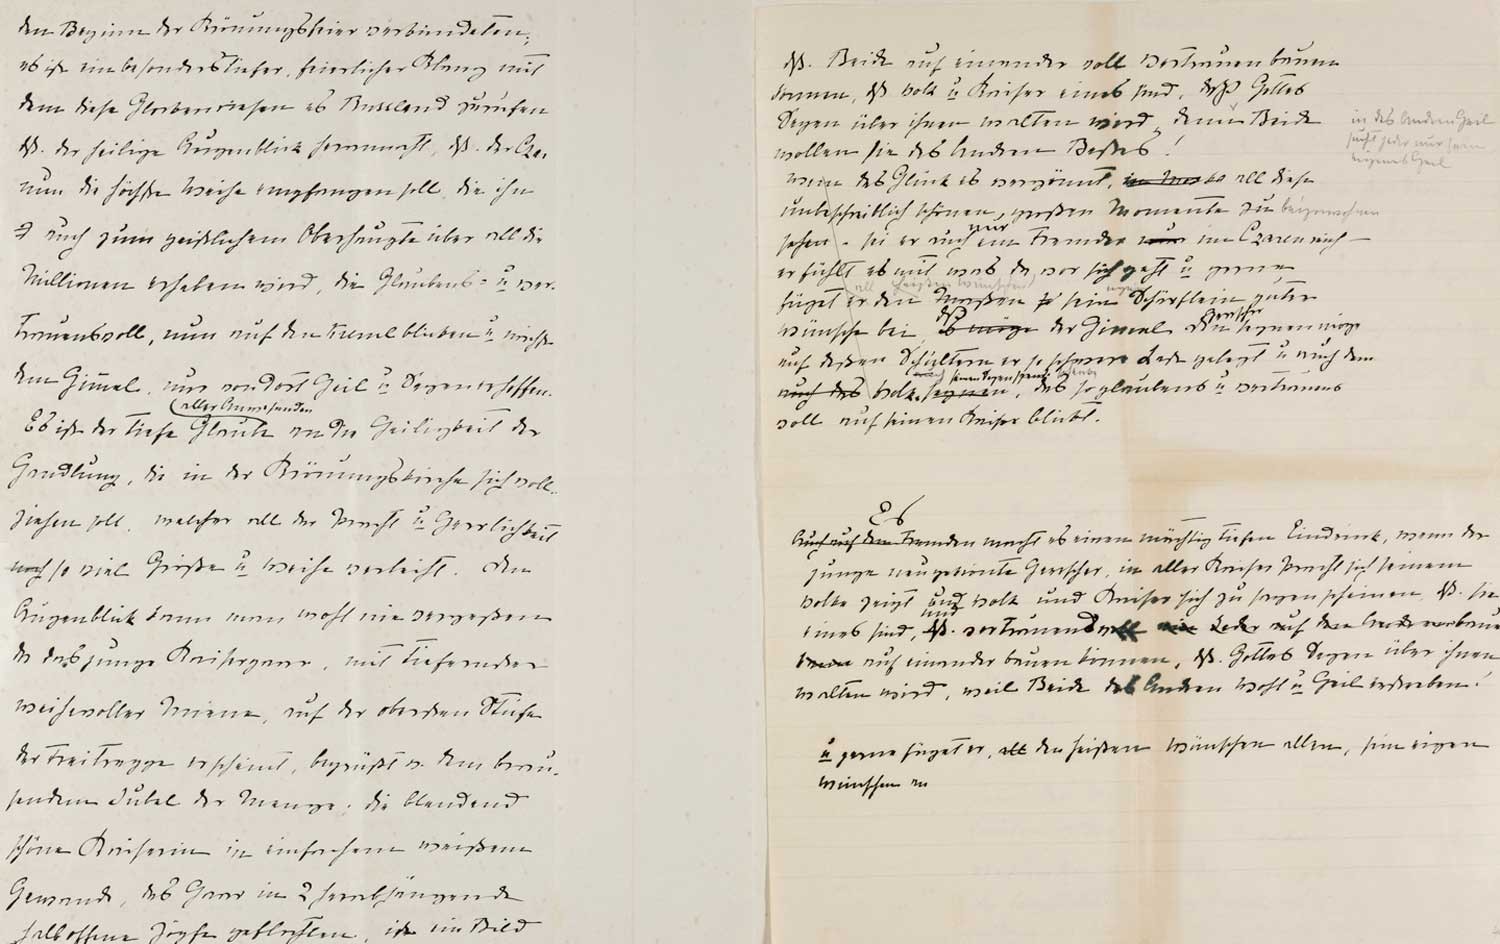 den Beginn der Krönungsfeier verbindeten;
es ist ein besonders tiefer, feierlicher Klang mit
dem diese Glocken es Russland zurufen
dß. der heilige Augenblick herannaht, dß. der Czar
nun die höchste Weihe empfangen soll, die ihn
auch zum geistlichem Oberhaupte über all die
Millionen erheben wird, die Glaubens= u ver-
trauensvoll, nun auf den Kreml blicken u nächst
dem Himel. nur von dort Heil u Segen erhoffen.
(aller Anwesenden
Es ist der tiefe Glaube an die Heiligkeit der
Handlung, die in der Krönungskirche sich voll-
ziehen soll, welcher all der Pracht u Herrlichkeit
noch so viel Größe u Weihe verleiht. Den
Augenblick kann man wohl nie vergeßen
da das junge Kaiserpaar, mit tiefernster
weihevoller Miene, auf der obersten Stufe
der Freitreppe erscheint, begrüßt v. dem brau-
senden Jubel der Menge. die blendend
schöne Kaiserin in einfachem weißem
Gewande, das Haar in 2 herabhängende
halboffene Zöpfe geflochten, ist ein Bild
dß. Beide auf einander voll Vertrauen bauen
können, dß Volk u Kaiser eines sind, daß Gottes
Segen über ihnen walten wird, denn Beide
wollen sie des Andern Bestes!
in des Andern Heil
sucht jeder nur sein
eigenes Heil
wem das Glück es vergönnt, all diese
unbeschreiblich schönen, großen Momente zu beizuwohnen
sehen - sei er auch nur ein Fremder nur im Czarenreich -
er fühlt es mit was da vor sich geht u gerne
all heißen Wünschen
füget er den Großen sein Schärflein guter
Wünsche bei, daß der Himel den Herrscher segnen möge
auf deßen Schultern er so schwere Last gelegt u auch dem
auch das Volke seinen Segen, das so glaubens u vertrauens
voll auf seinen Kaiser blickt.
Es
Auch auf den Fremden macht es einen mächtig tiefen Eindruck, wenn der
junge neugekrönte Herrscher, in aller Kaiser Pracht sich seinem
Volke zeigt und Volk und Kaiser sich zu sagen scheinen, dß. sie
eines sind, dß. vertrauensvoll Jeder auf den
auf einander bauen können, dß. Gottes Segen über ihnen
walten wird, weil Beide des Andern Wohl u Heil erstreben!
u gerne füget er, all den heißen Wünschen allen, sein eigen
Wünschen an